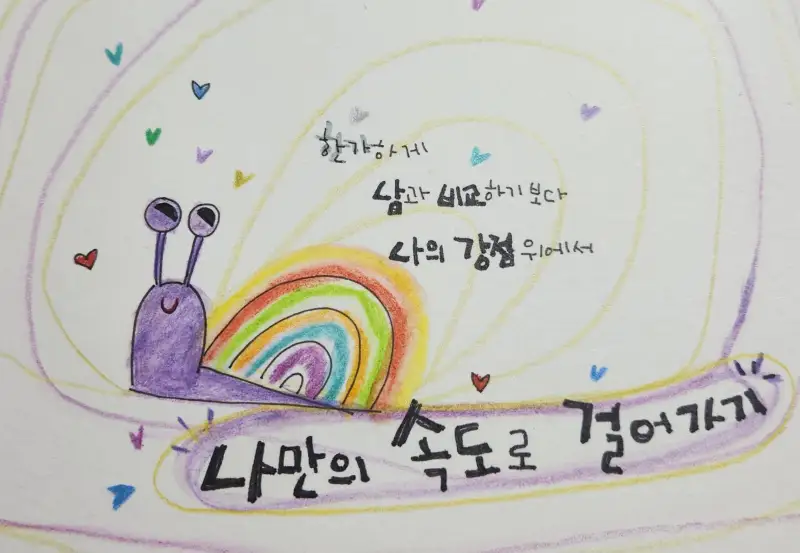 한가하게
남과 비교하기보다
나의 강점 위에서
나만의 속도로 걸어가기